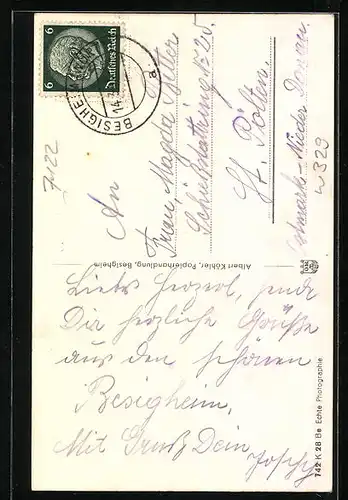 6 Deutsches Reich 6
BESIGHE
14.
a
7122
An
Frau, Magda
St. Pölten.
Ostmark-Nieder Donau.
W 329
Albert Köhler, Papierhandlung, Besigheim
Liebes Herzerl, sende
Dir herzliche Grüße
aus dem schönen
Besigheim,
Mit Gruß Dein
742 K 28 Be Echte Photographie